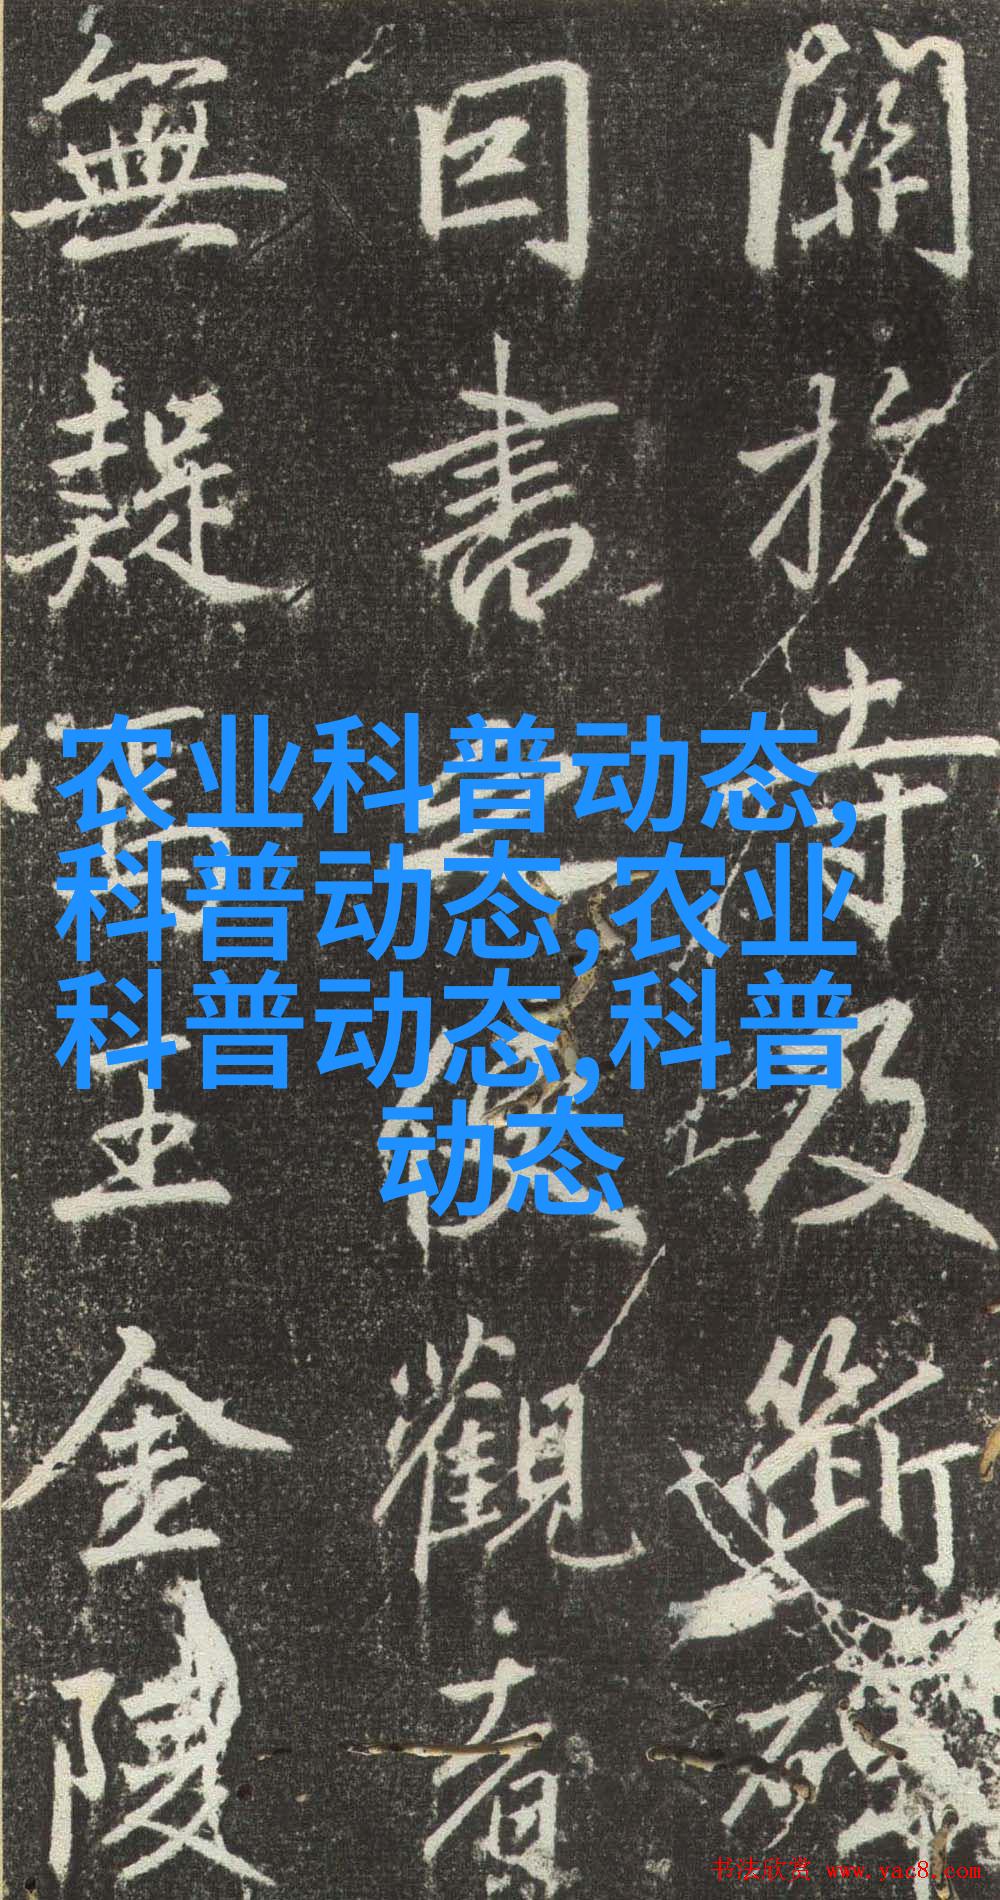 农业科普动态,
科普动态,农业
科普动态,科普
动态
關扵持及斷
書觀者
無疑王金陵
书法欣赏 www.yac8.com